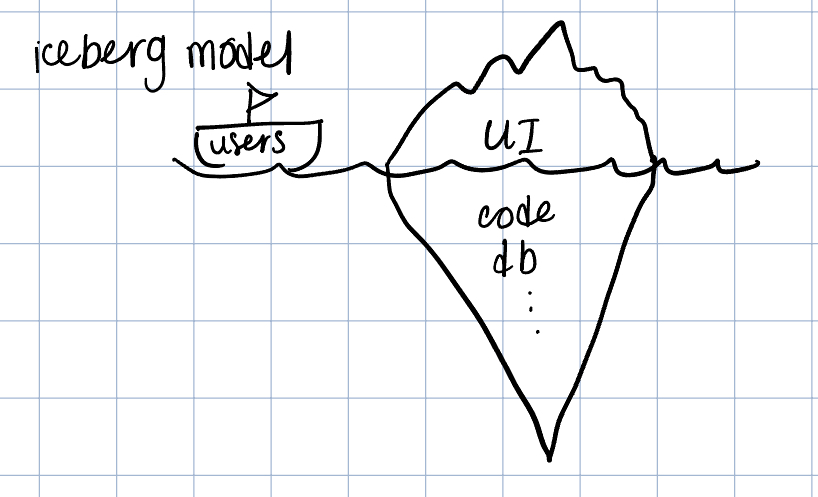 iceberg model
users
UI
code
db
⋮